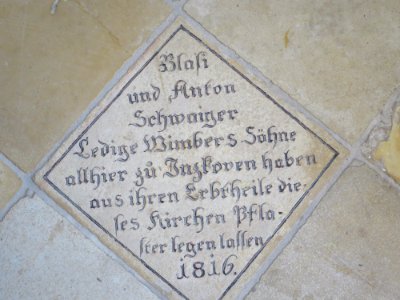 Blasi
und Anton
Schwaiger
Ledige Wimbers Söhne
allhier zu Inzkoven haben
aus ihren Erbtheile die-
ses Kirchen Pfla-
ster legen lassen
1816.